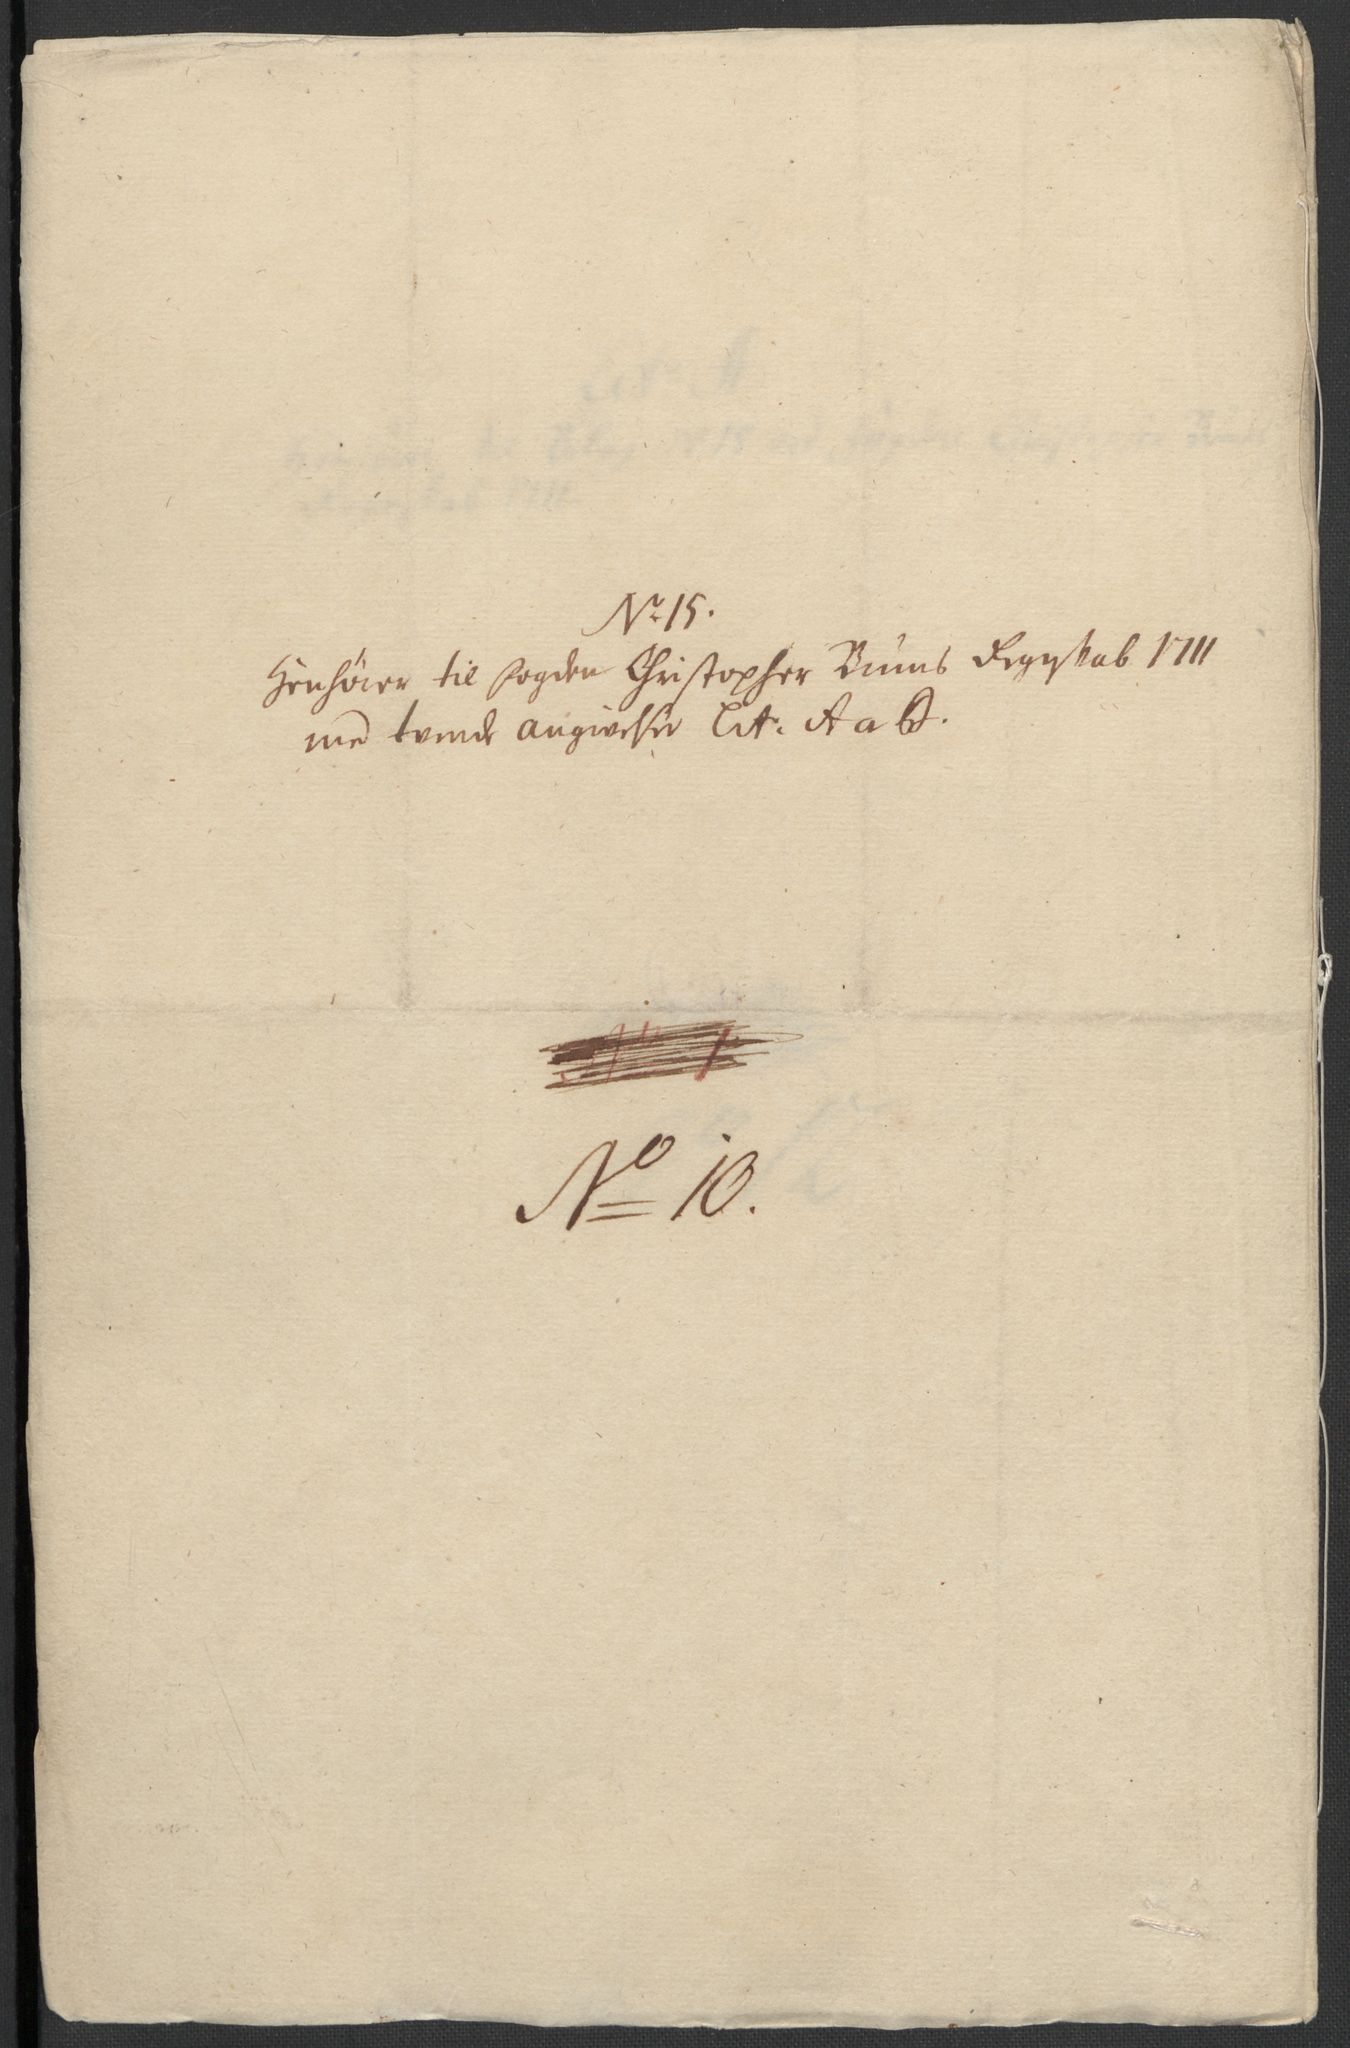 No 15.
Henhörer til fogden Christopher Biuns Regnskab 1711
med tvende angivelser Lit. A a B.
No 10.